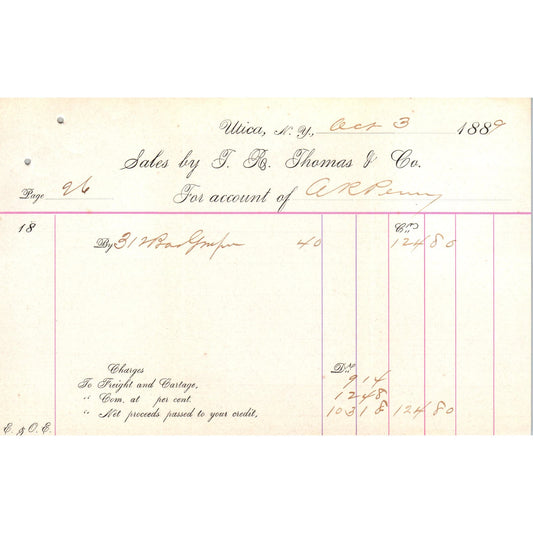 Utica, N. Y., Oct 3 1889
Sales by T. R. Thomas & Co.
Page 26 For account of A R Penny
18 Cr.
By 312 Bas Grapes 40 124 80
Charges Dr.
To Freight and Cartage, 9 14
" Com. at per cent. 12 48
" Net proceeds passed to your credit, 103 18 124 80
E. & O. E.